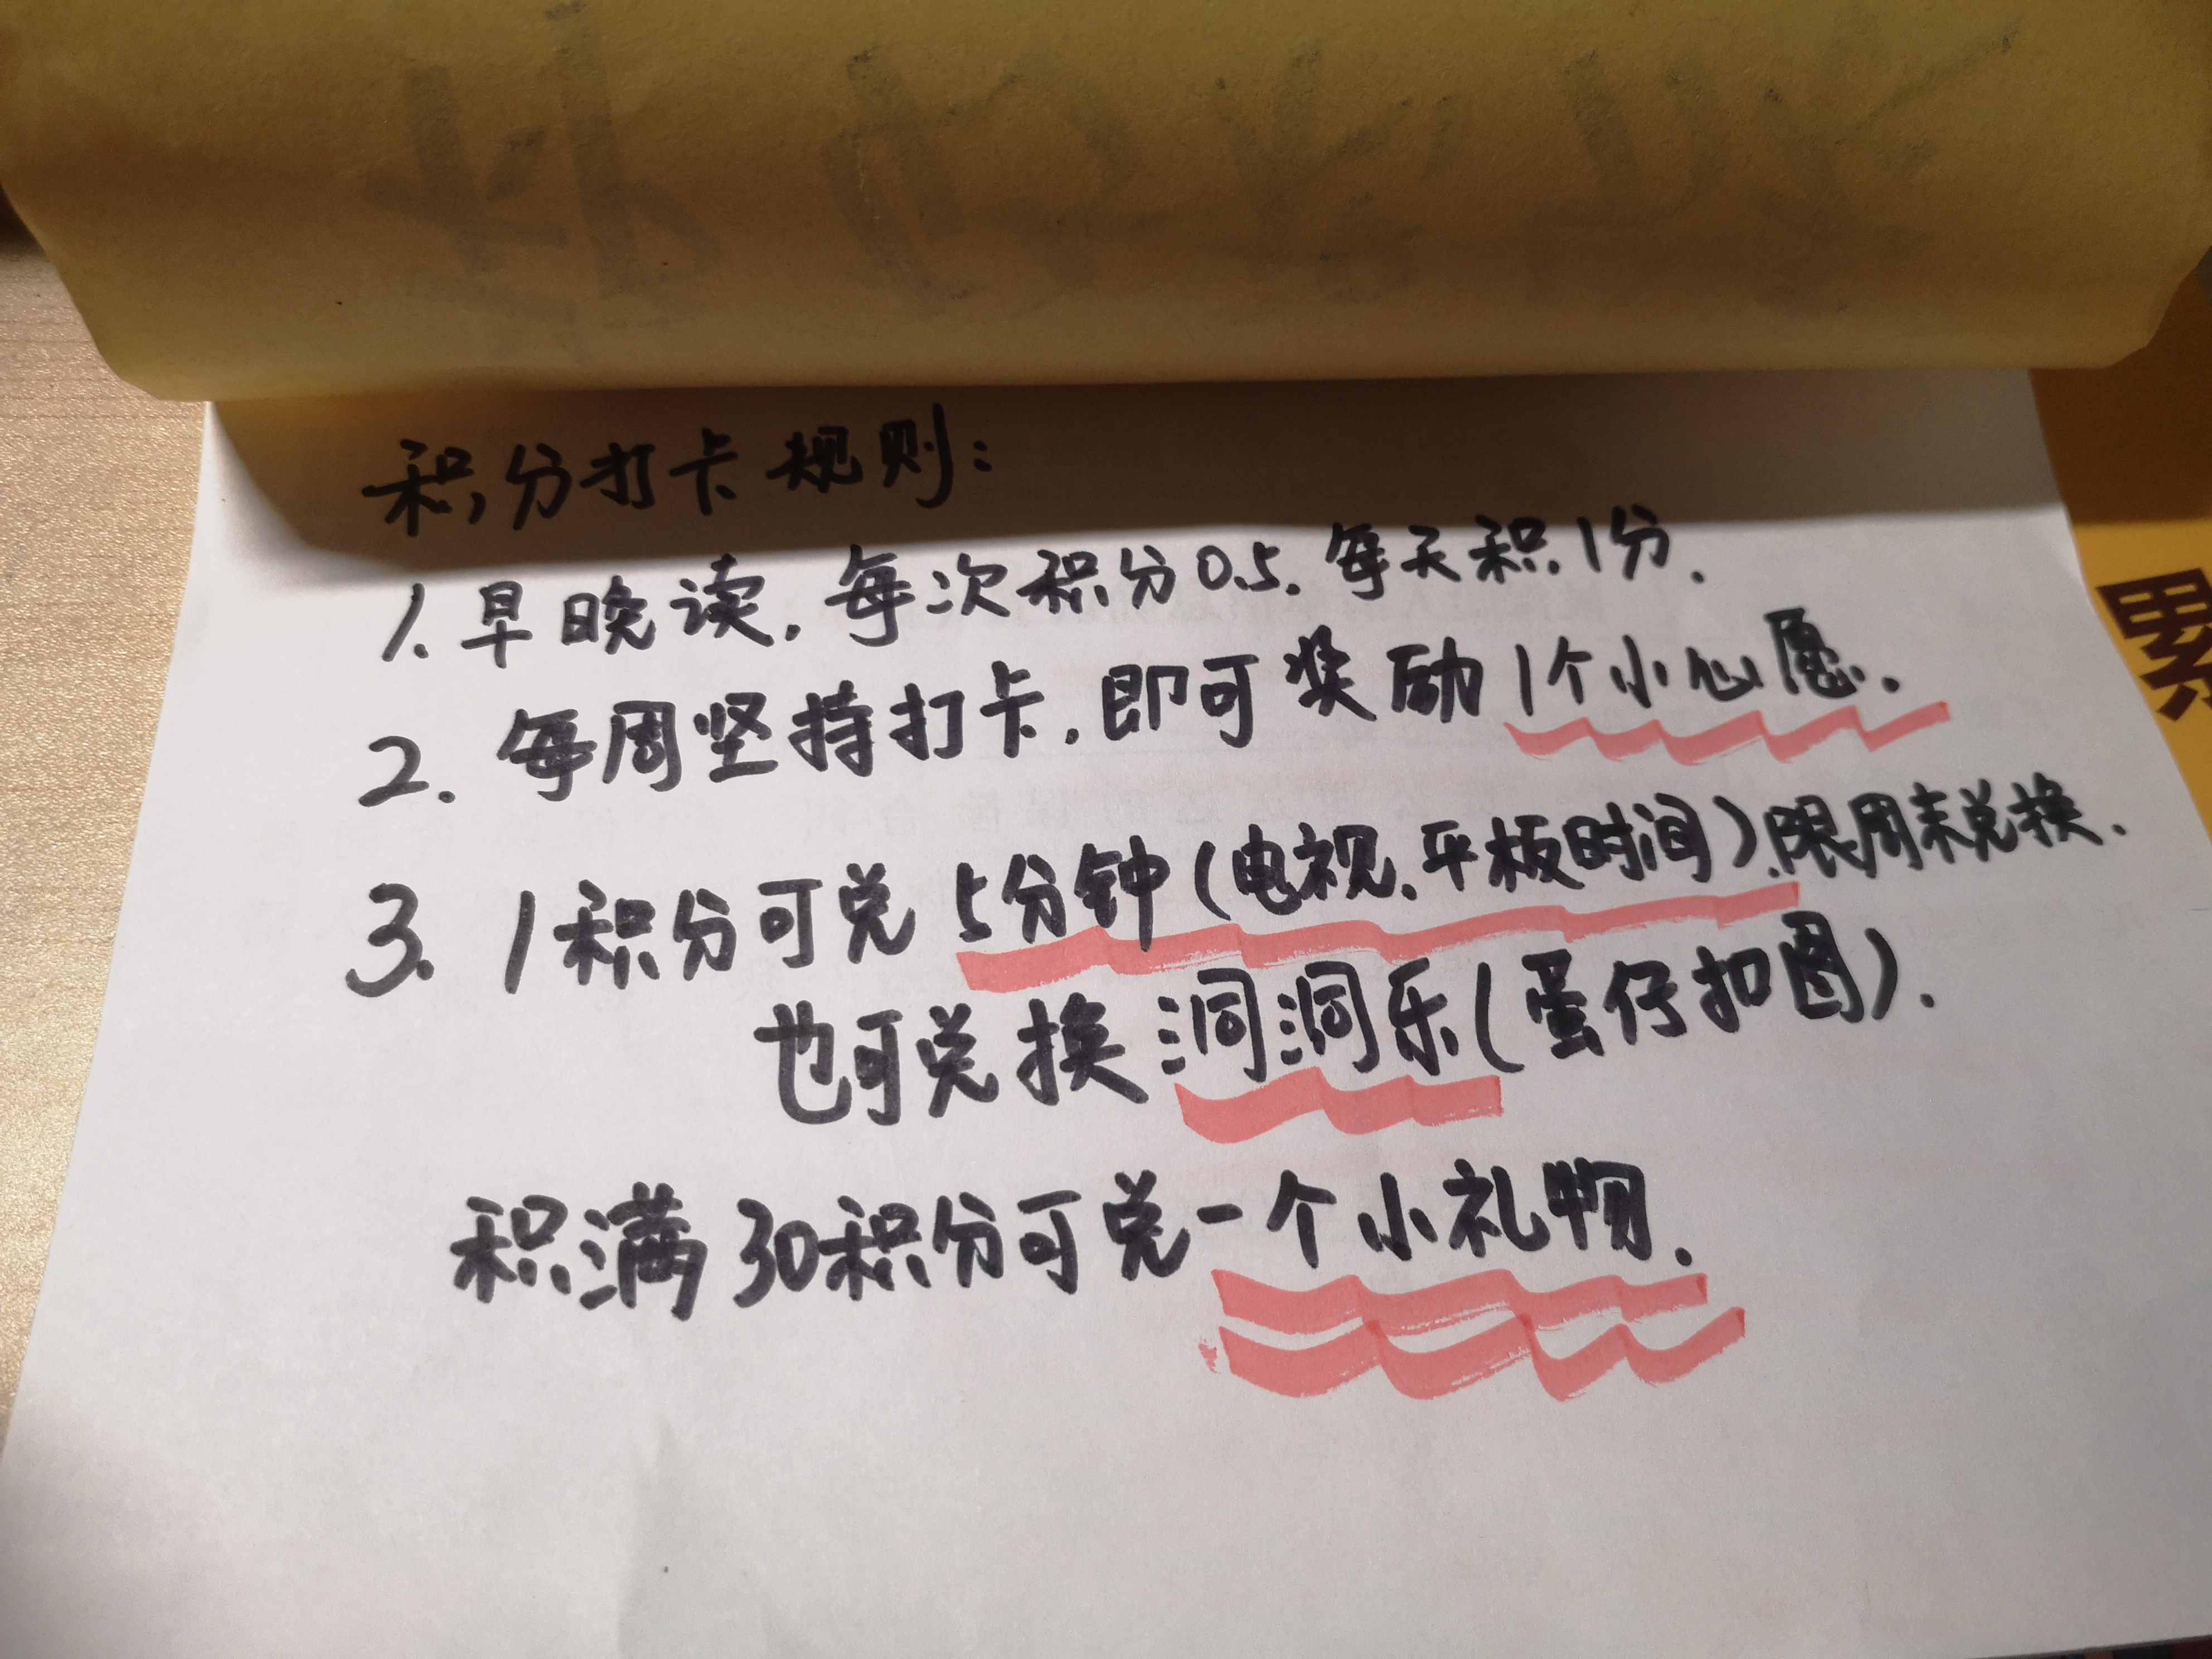 积分打卡规则:
1. 早晚读, 每次积分0.5. 每天积1分.
2. 每周坚持打卡, 即可奖励1个小心愿.
3. 1积分可兑5分钟(电视、平板时间).限周末兑换.
也可兑换洞洞乐(蛋仔扣图).
积满30积分可兑一个小礼物.
累